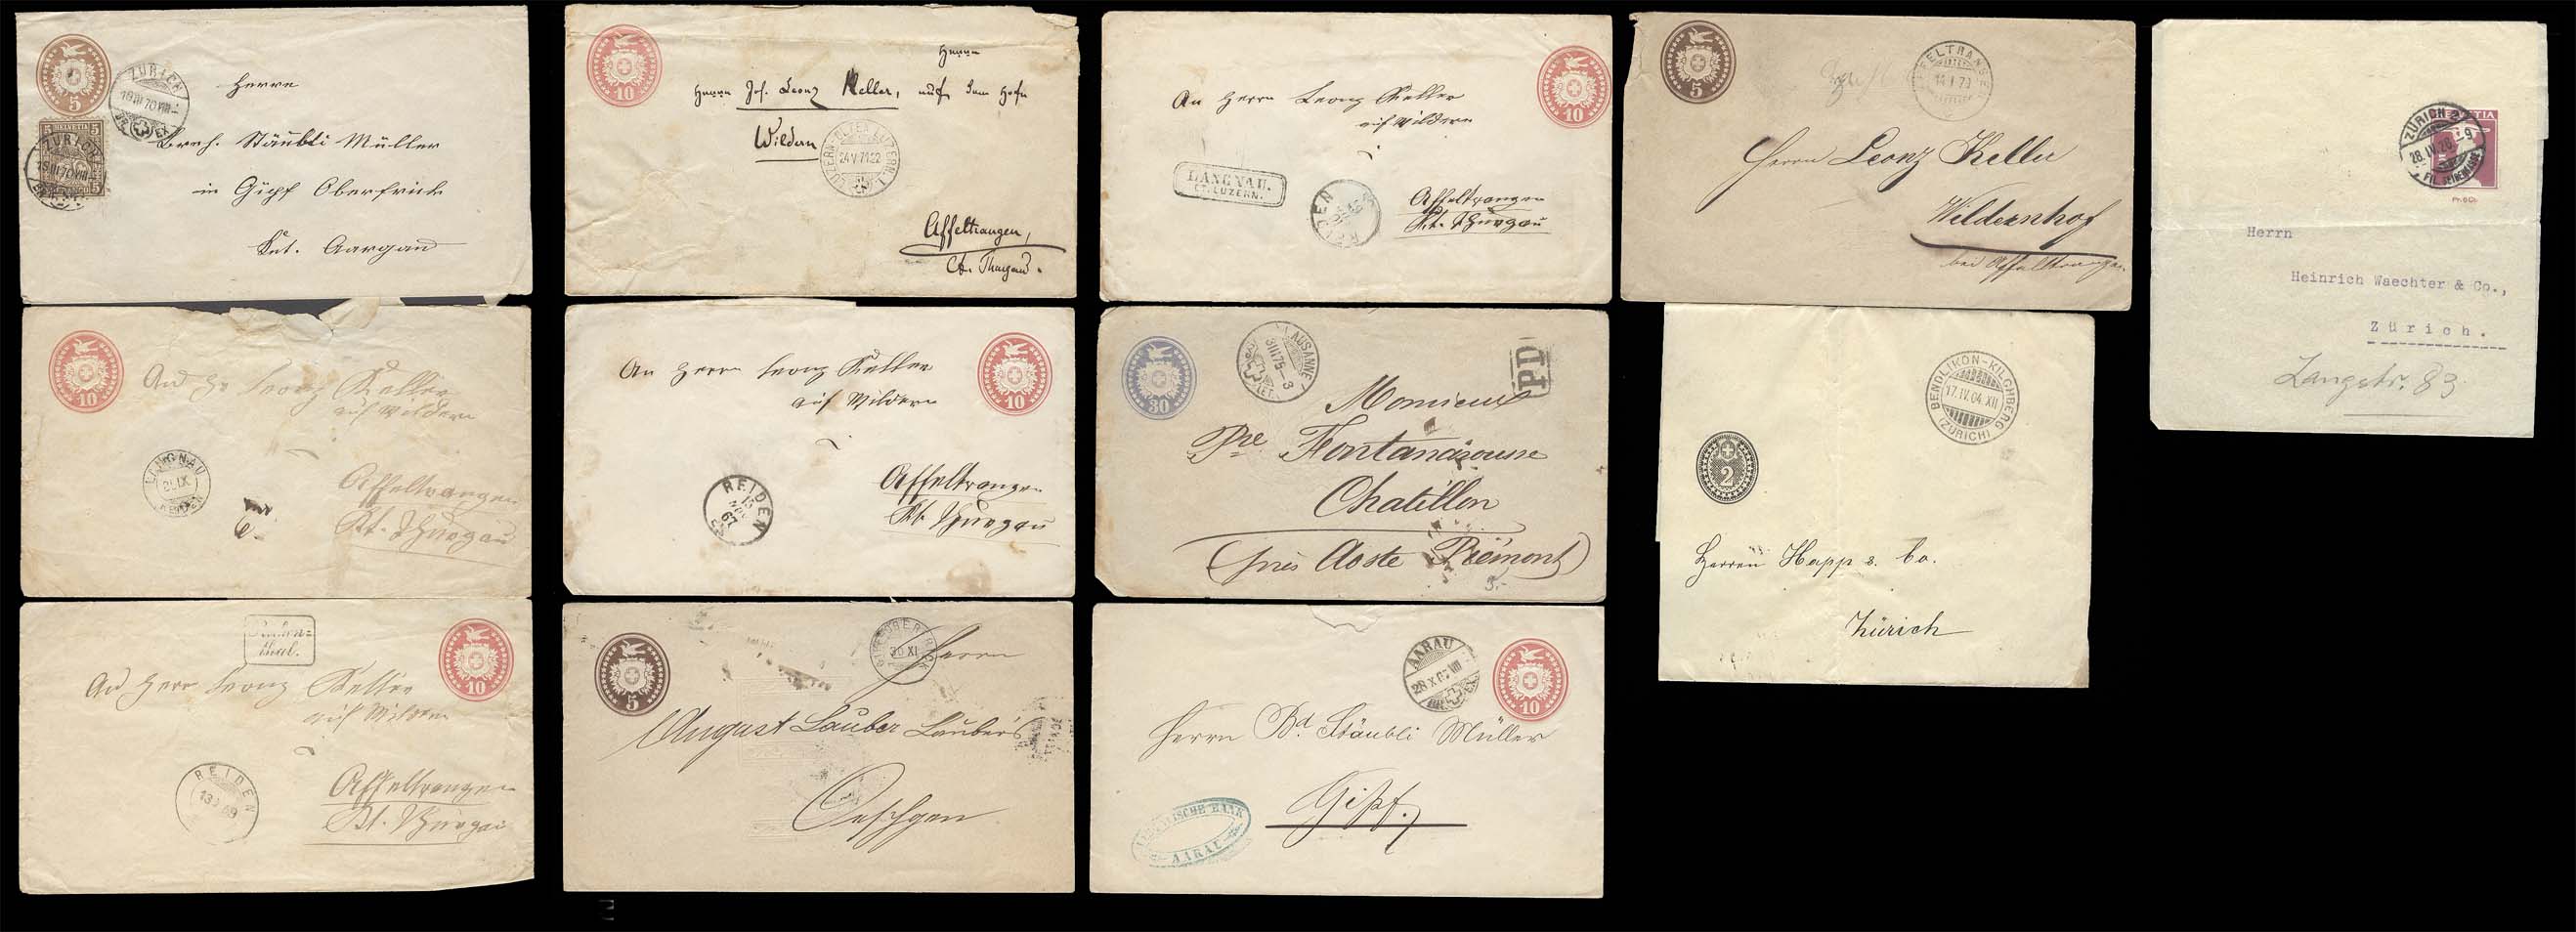 5
ZÜRICH
Herrn
5 HELVETIA 5
ZÜRICH
Stäubli Müller
in Gipf Oberfrick
Kt. Aargau
10
Herrn
Herrn Jos. Leonz Keller, auf dem Hofe
Wildern
24 V 71 22
Affeltrangen,
Ct. Thurgau.
10
An Herrn Leonz Keller
auf Wildern
LANGNAU.
CT. LUZERN.
REIDEN
Affeltrangen
Kt. Thurgau
5
Herrn Leonz Keller
Wildernhof
bei Affeltrangen
ZÜRICH 2
28.IV.
Herrn
Heinrich Waechter & Co.,
Zürich.
Langstr. 83
10
An Hr Leonz Keller
auf Wildern
LANGNAU
REIDEN
Affeltrangen
Kt. Thurgau
10
An Herrn Leonz Keller
auf Wildern
REIDEN
67
Affeltrangen
Kt. Thurgau
30
LAUSANNE
PD
Monsieur
Pre
Chatillon
(près Aoste Piémont)
BENDLIKON-KILCHBERG
17.IV.04.XII
(ZÜRICH)
2
Herren Happ & Co.
Zürich
10
An Herr Leonz Keller
auf Wildern
REIDEN
Affeltrangen
Kt. Thurgau
5
30 XI
Herrn
August Lauber Laubers
Oeschgen
AARAU
10
Herrn Bd. Stäubli Müller
Gipf.
AARAU